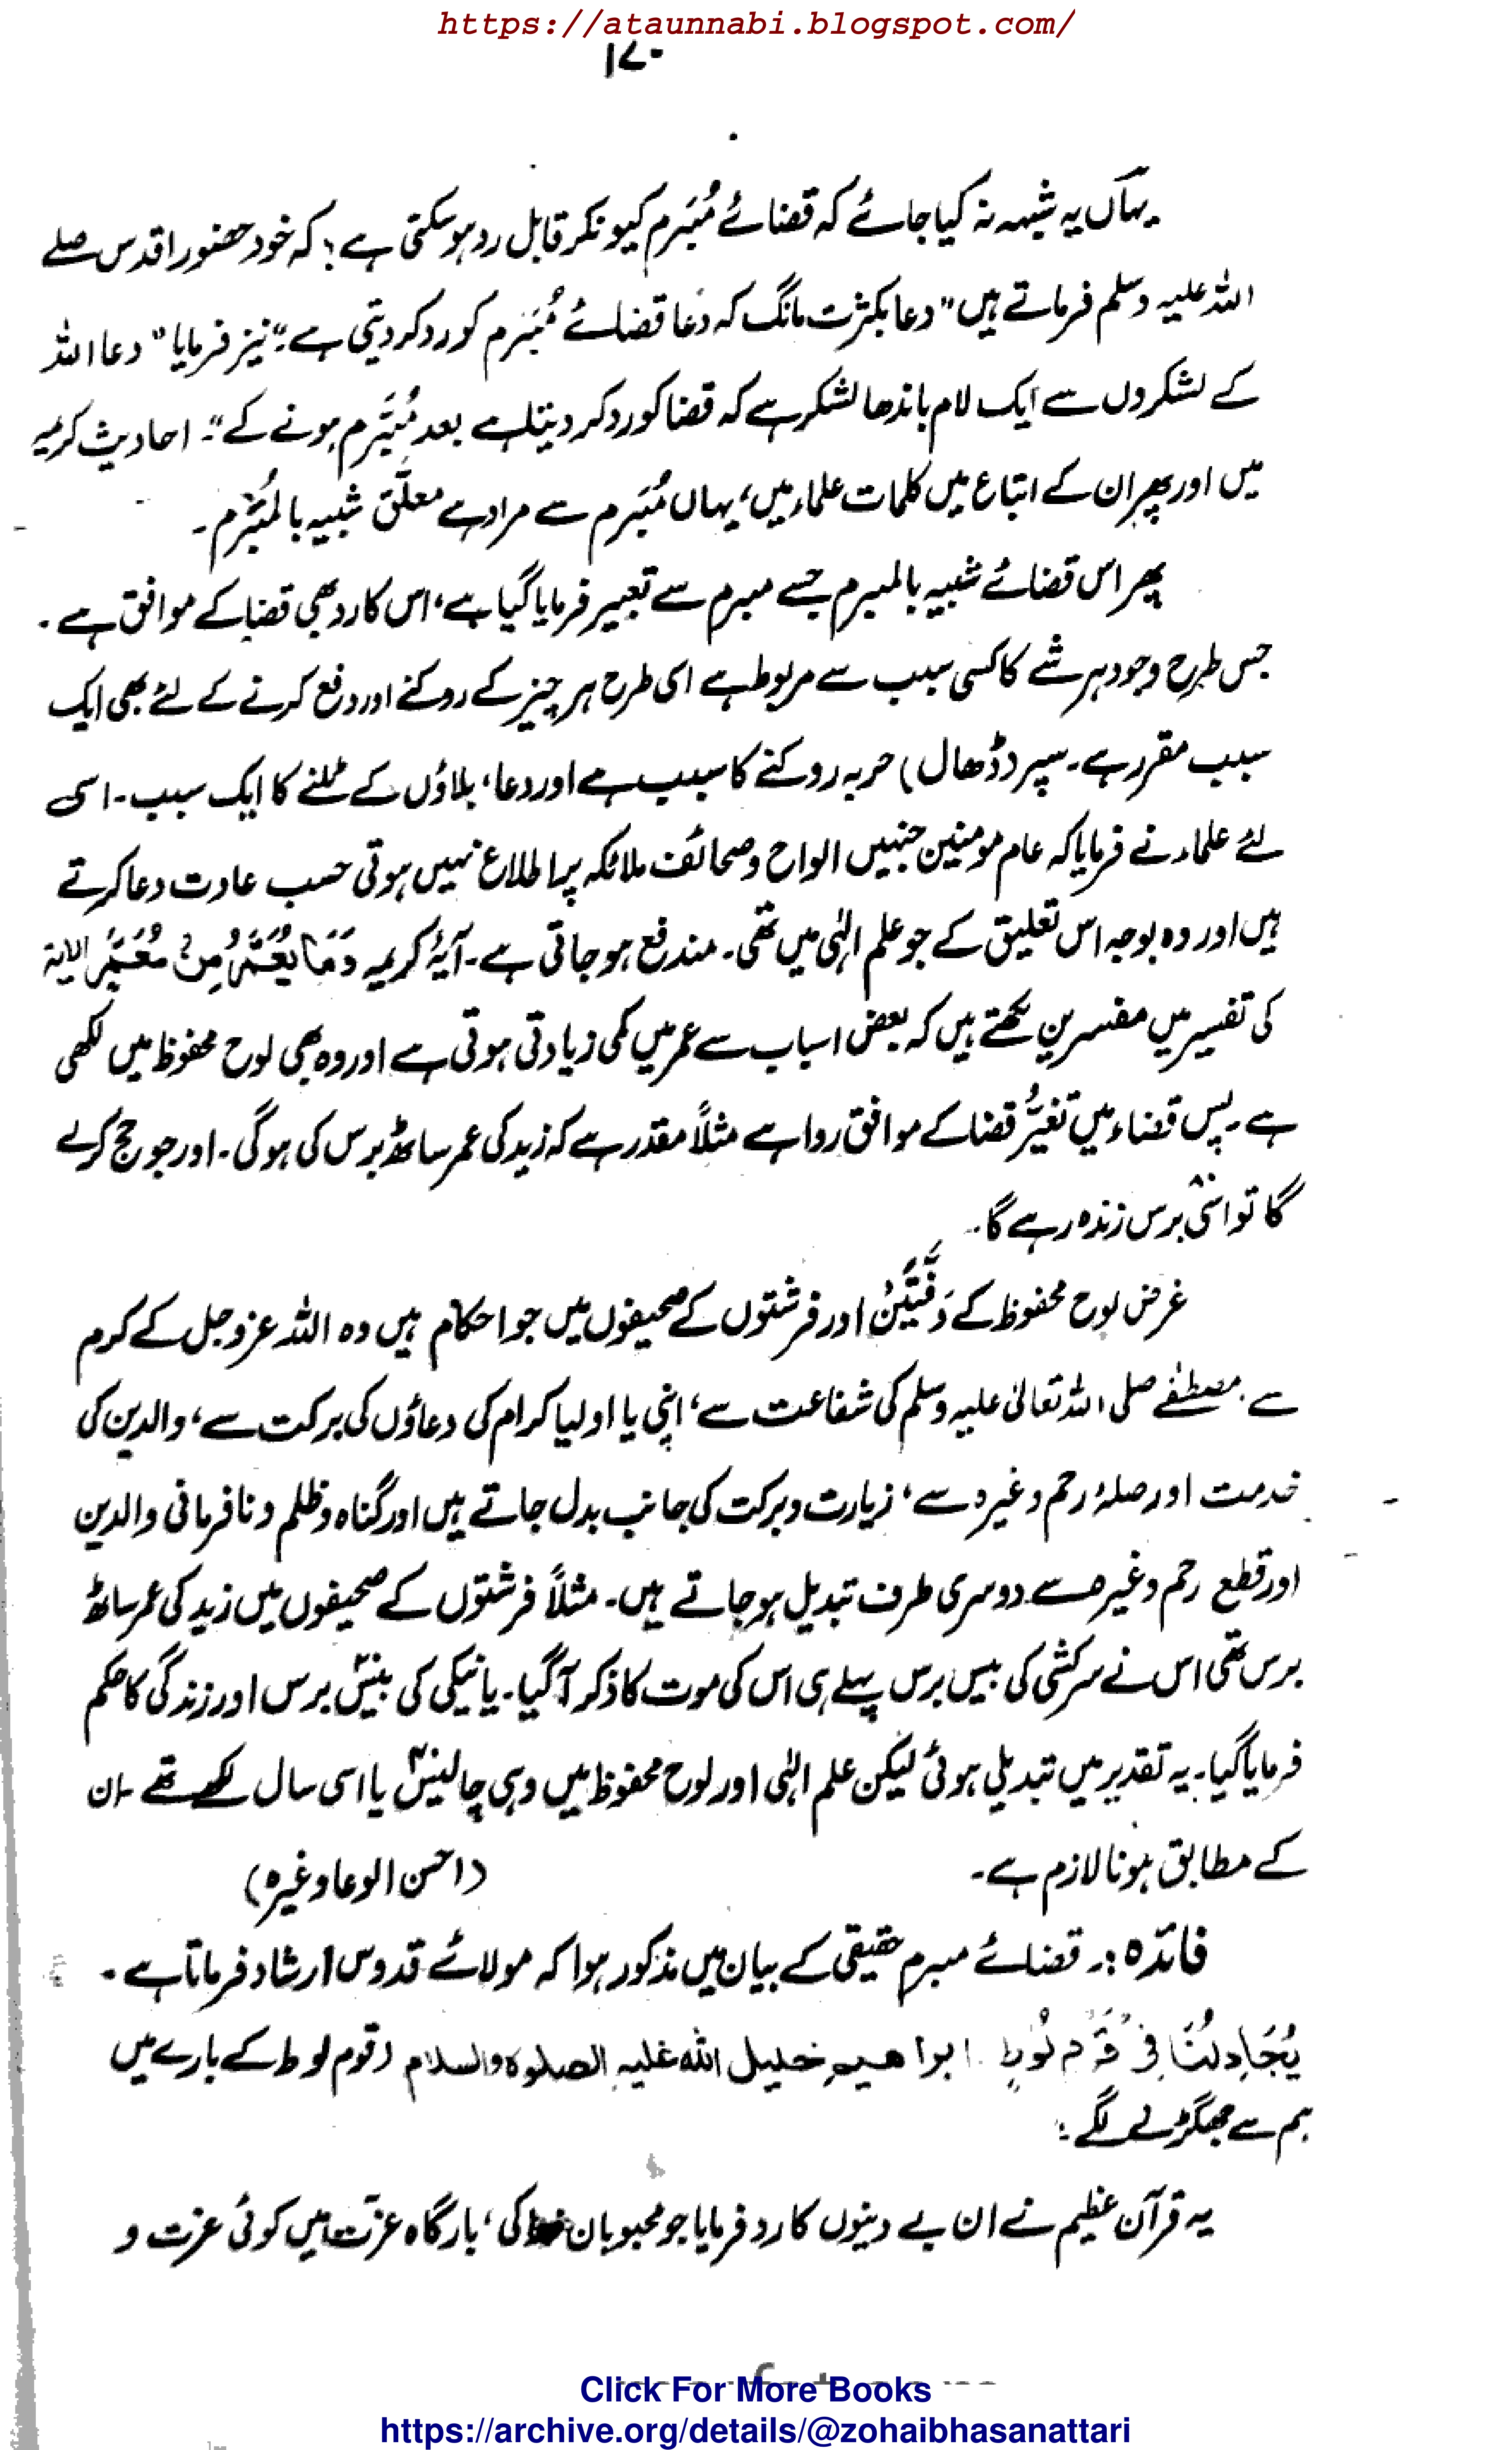 https://ataunnabi.blogspot.com/
۱۷۰
یہاں یہ شبہہ نہ کیا جائے کہ قضائے مُبرَم کیونکر قابل رد ہو سکتی ہے؛ کہ خود حضور اقدس صلے
اللہ علیہ وسلم فرماتے ہیں "دعا بکثرت مانگ کہ دعا قضائے مُبرَم کو رد کر دیتی ہے"؛ نیز فرمایا "دعا اللہ
کے لشکروں سے ایک لام باندھا لشکر ہے کہ قضا کو رد کر دیتا ہے بعد مُبرَم ہونے کے"۔ احادیث کریمہ
میں اور پھر ان کے اتباع میں کلمات علماء میں، یہاں مُبرَم سے مراد ہے معلّق شبیہ بالمُبرَم۔
پھر اس قضائے شبیہ بالمبرم جسے مبرم سے تعبیر فرمایا گیا ہے، اس کا رد بھی قضا کے موافق ہے۔
جس طرح وجود ہر شے کا کسی سبب سے مربوط ہے اسی طرح ہر چیز کے روکنے اور دفع کرنے کے لئے بھی ایک
سبب مقرر ہے۔ سپر (ڈھال) حربہ روکنے کا سبب ہے اور دعا، بلاؤں کے ٹلنے کا ایک سبب۔ اسی
لئے علماء نے فرمایا کہ عام مومنین جنہیں الواح وصحائف ملائکہ پر اطلاع نہیں ہوتی حسب عادت دعا کرتے
ہیں اور وہ بوجہ اس تعلیق کے جو علم الٰہی میں تھی۔ مندفع ہو جاتی ہے۔ آیۂ کریمہ وَمَا یُعَمَّرُ مِنْ مُعَمَّرٍ الایۃ
کی تفسیر میں مفسرین لکھتے ہیں کہ بعض اسباب سے عمر میں کمی زیادتی ہوتی ہے اور وہ بھی لوح محفوظ میں لکھی
ہے۔ پس قضاء میں تغیُّر قضا کے موافق روا ہے مثلاً مقدر ہے کہ زید کی عمر ساٹھ برس کی ہوگی۔ اور جو حج کرلے
گا تو اسّی برس زندہ رہے گا۔
غرض لوح محفوظ کے دَفَّتَیْن اور فرشتوں کے صحیفوں میں جو احکام ہیں وہ اللہ عزوجل کے کرم
سے، مصطفےٰ صلی اللہ تعالیٰ علیہ وسلم کی شفاعت سے، اپنی یا اولیا کرام کی دعاؤں کی برکت سے، والدین کی
خدمت اور صلۂ رحم وغیرہ سے، زیارت و برکت کی جانب بدل جاتے ہیں اور گناہ وظلم ونافرمانی والدین
اور قطع رحم وغیرہ سے دوسری طرف تبدیل ہو جاتے ہیں۔ مثلاً فرشتوں کے صحیفوں میں زید کی عمر ساٹھ
برس تھی اس نے سرکشی کی بیس برس پہلے ہی اس کی موت کا ذکر آ گیا۔ یا نیکی کی بیس برس اور زندگی کا حکم
فرمایا گیا۔ یہ تقدیر میں تبدیلی ہوئی لیکن علم الٰہی اور لوح محفوظ میں وہی چالیس یا اسی سال لکھے تھے۔ ان
کے مطابق ہونا لازم ہے۔ (احسن الوعا وغیرہ)
فائدہ:۔ قضائے مبرم حقیقی کے بیان میں مذکور ہوا کہ مولائے قدوس ارشاد فرماتا ہے۔
یُجَادِلُنَا فِیْ قَوْمِ لُوْطٍ۔ ابراھیم خلیل اللہ علیہ الصلوۃ والسلام (قوم لوط کے بارے میں
ہم سے جھگڑنے لگے؛
یہ قرآن عظیم نے ان بے دینوں کا رد فرمایا جو محبوبان خدا کی، بارگاہ عزت میں کوئی عزت و
Click For More Books
https://archive.org/details/@zohaibhasanattari